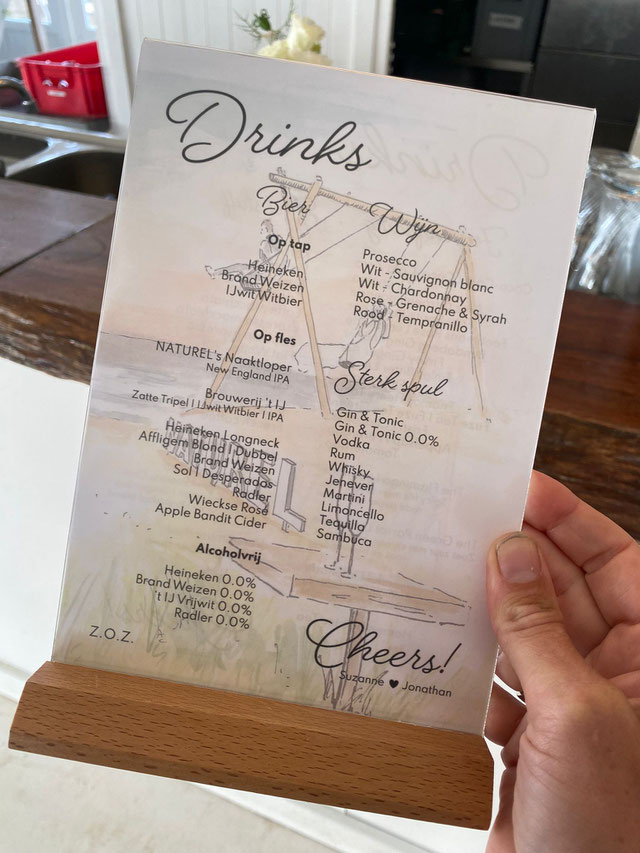 Drinks
Bier
Op tap
Heineken
Brand Weizen
IJwit Witbier
Op fles
NATUREL's Naaktloper
New England IPA
Brouwerij 't IJ
Zatte Tripel I IJwit Witbier I IPA
Heineken Longneck
Affligem Blond I Dubbel
Brand Weizen
Sol I Desperados
Radler
Wieckse Rosé
Apple Bandit Cider
Alcoholvrij
Heineken 0.0%
Brand Weizen 0.0%
't IJ Vrijwit 0.0%
Radler 0.0%
Z.O.Z.
Wijn
Prosecco
Wit - Sauvignon blanc
Wit - Chardonnay
Rose - Grenache & Syrah
Rood - Tempranillo
Sterk spul
Gin & Tonic
Gin & Tonic 0.0%
Vodka
Rum
Whisky
Jenever
Martini
Limoncello
Tequilla
Sambuca
Cheers!
Suzanne ♥ Jonathan